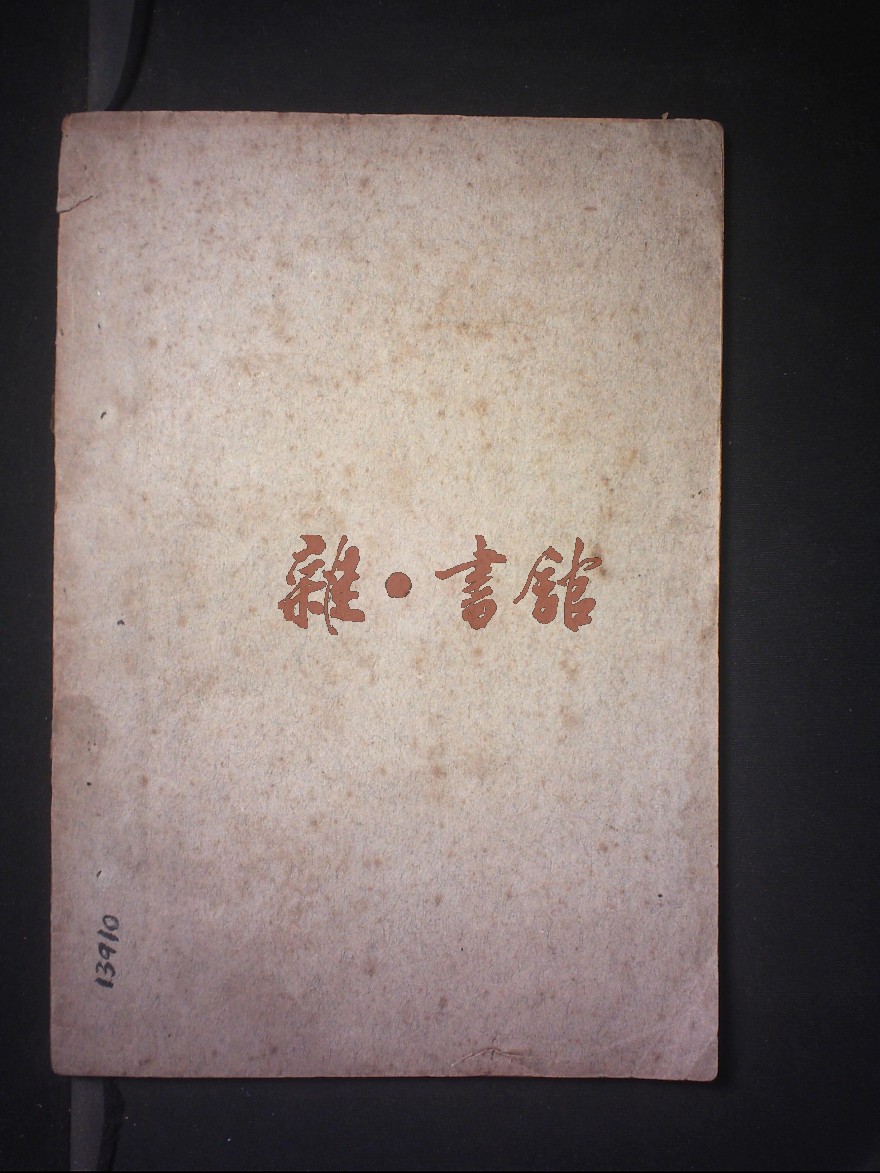 雜·書館
13910